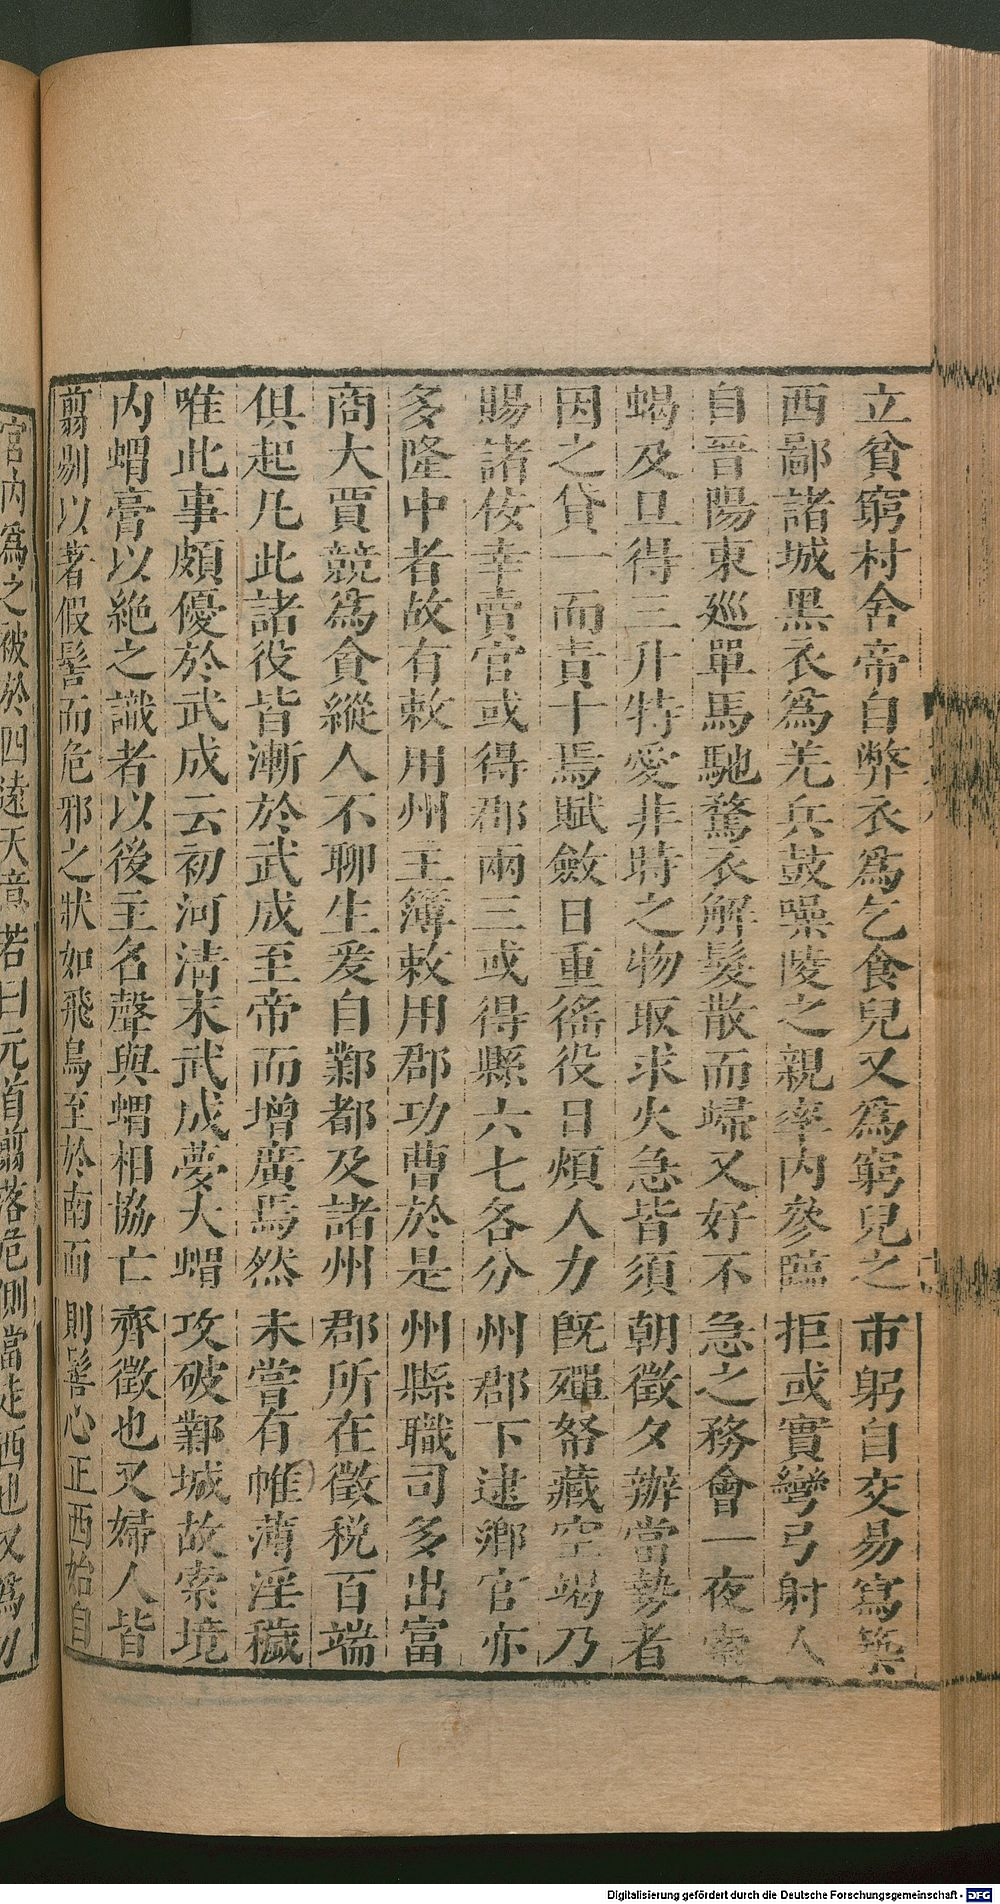 立貧窮村舍帝自弊衣爲乞食兒又爲窮兒之市躬自交易寫築
西鄙諸城黑衣爲羌兵鼓噪陵之親率内參臨拒或實彎弓射人
自晉陽東廵單馬馳騖衣解髮散而歸又好不急之務會一夜索
蝎及旦得三升特愛非時之物取求火急皆須朝徵夕辦當勢者
因之貸一而責十焉賦斂日重徭役日煩人力旣殫帑藏空竭乃
賜諸佞幸賣官或得郡兩三或得縣六七各分州郡下逮鄉官亦
多降中者故有敕用州主簿敕用郡功曹於是州縣職司多出富
商大賈競爲貪縱人不聊生爰自鄴都及諸州郡所在徵税百端
俱起凡此諸役皆漸於武成至帝而增廣焉然未嘗有帷薄淫穢
唯此事頗優於武成云初河清末武成夢大蝟攻破鄴城故索境
内蝟膏以絶之識者以後主名聲與蝟相協亡齊徵也又婦人皆
翦剔以著假髻而危邪之狀如飛鳥至於南面則髻心正西始自
宮内爲之被於四遠天意若曰元首翦落危側當走西也又爲刀
Digitalisierung gefördert durch die Deutsche Forschungsgemeinschaft - DFG